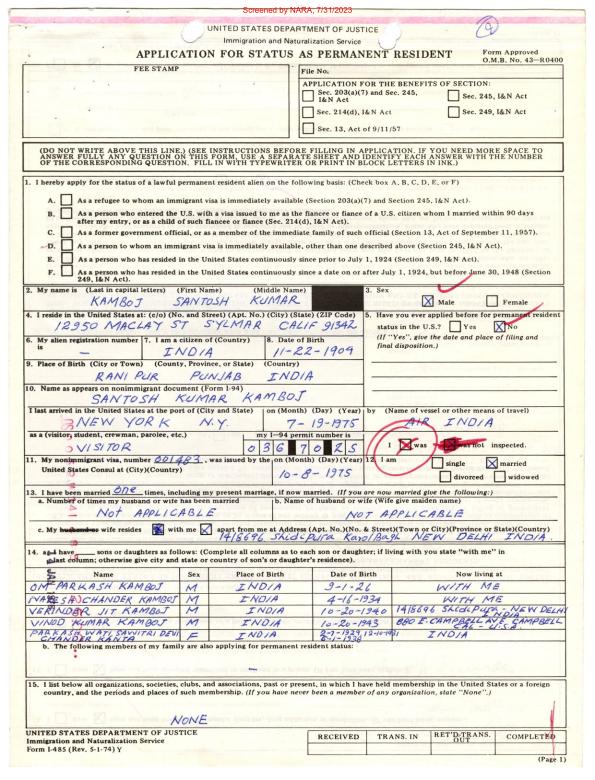 Screened by NARA, 7/31/2023
UNITED STATES DEPARTMENT OF JUSTICE
Immigration and Naturalization Service
APPLICATION FOR STATUS AS PERMANENT RESIDENT
Form Approved
O.M.B. No. 43-R0400
FEE STAMP
File No.
APPLICATION FOR THE BENEFITS OF SECTION:
Sec. 203(a)(7) and Sec. 245, I&N Act
Sec. 245, I&N Act
Sec. 214(d), I&N Act
Sec. 249, I&N Act
Sec. 13, Act of 9/11/57
(DO NOT WRITE ABOVE THIS LINE.) (SEE INSTRUCTIONS BEFORE FILLING IN APPLICATION. IF YOU NEED MORE SPACE TO
ANSWER FULLY ANY QUESTION ON THIS FORM, USE A SEPARATE SHEET AND IDENTIFY EACH ANSWER WITH THE NUMBER
OF THE CORRESPONDING QUESTION. FILL IN WITH TYPEWRITER OR PRINT IN BLOCK LETTERS IN INK.)
1. I hereby apply for the status of a lawful permanent resident alien on the following basis: (Check box A, B, C, D, E, or F)
A. As a refugee to whom an immigrant visa is immediately available (Section 203(a)(7) and Section 245, I&N Act).
B. As a person who entered the U.S. with a visa issued to me as the fiancee or fiance of a U.S. citizen whom I married within 90 days
after my entry, or as a child of such fiancee or fiance (Sec. 214(d), I&N Act).
C. As a former government official, or as a member of the immediate family of such official (Section 13, Act of September 11, 1957).
D. As a person to whom an immigrant visa is immediately available, other than one described above (Section 245, I&N Act).
E. As a person who has resided in the United States continuously since prior to July 1, 1924 (Section 249, I&N Act).
F. As a person who has resided in the United States continuously since a date on or after July 1, 1924, but before June 30, 1948 (Section
249, I&N Act).
2. My name is (Last in capital letters) (First Name) (Middle Name)
KAMBOJ SANTOSH KUMAR
3. Sex
Male Female
4. I reside in the United States at: (c/o) (No. and Street) (Apt. No.) (City) (State) (ZIP Code)
12950 MACLAY ST SYLMAR CALIF 91342
5. Have you ever applied before for permanent resident
status in the U.S.? Yes No
(If "Yes", give the date and place of filing and
final disposition.)
6. My alien registration number
is -
7. I am a citizen of (Country)
INDIA
8. Date of Birth
11-22-1909
9. Place of Birth (City or Town) (County, Province, or State) (Country)
RANI PUR PUNJAB INDIA
10. Name as appears on nonimmigrant document (Form I-94)
SANTOSH KUMAR KAMBOJ
I last arrived in the United States at the port of (City and State)
NEW YORK N.Y.
on (Month) (Day) (Year)
7-19-1975
by (Name of vessel or other means of travel)
AIR INDIA
as a (visitor, student, crewman, parolee, etc.)
VISITOR
my I-94 permit number is
036 7025
I was was not inspected.
11. My nonimmigrant visa, number 001483, was issued by the
United States Consul at (City)(Country)
on (Month) (Day) (Year)
10-8-1975
12. I am
single married
divorced widowed
13. I have been married one times, including my present marriage, if now married. (If you are now married give the following:)
a. Number of times my husband or wife has been married
Not APPLICABLE
b. Name of husband or wife (Wife give maiden name)
NOT APPLICABLE
c. My husband or wife resides with me apart from me at Address (Apt. No.)(No. & Street)(Town or City)(Province or State)(Country)
14/5696 Shidipura Karol Bagh NEW DELHI INDIA.
14. I have ____ sons or daughters as follows: (Complete all columns as to each son or daughter; if living with you state "with me" in
last column; otherwise give city and state or country of son's or daughter's residence).
Name Sex Place of Birth Date of Birth Now living at
OM PARKASH KAMBOJ M INDIA 9-1-26 WITH ME
NARESH CHANDER KAMBOJ M INDIA 4-16-1934 WITH ME
VERINDER JIT KAMBOJ M INDIA 10-20-1940 14/5696 Shidipura - NEW DELHI INDIA
VINOD KUMAR KAMBOJ M INDIA 10-20-1943 880 E. CAMPBELL AVE CAMPBELL CAL - U.S.A.
PARKASH WATI SAVITRI DEVI
CHANDER KANTA F INDIA INDIA
b. The following members of my family are also applying for permanent resident status:
-
15. I list below all organizations, societies, clubs, and associations, past or present, in which I have held membership in the United States or a foreign
country, and the periods and places of such membership. (If you have never been a member of any organization, state "None".)
NONE
UNITED STATES DEPARTMENT OF JUSTICE
Immigration and Naturalization Service
Form I-485 (Rev. 5-1-74) Y
RECEIVED TRANS. IN RET'D/TRANS. OUT COMPLETED
(Page 1)